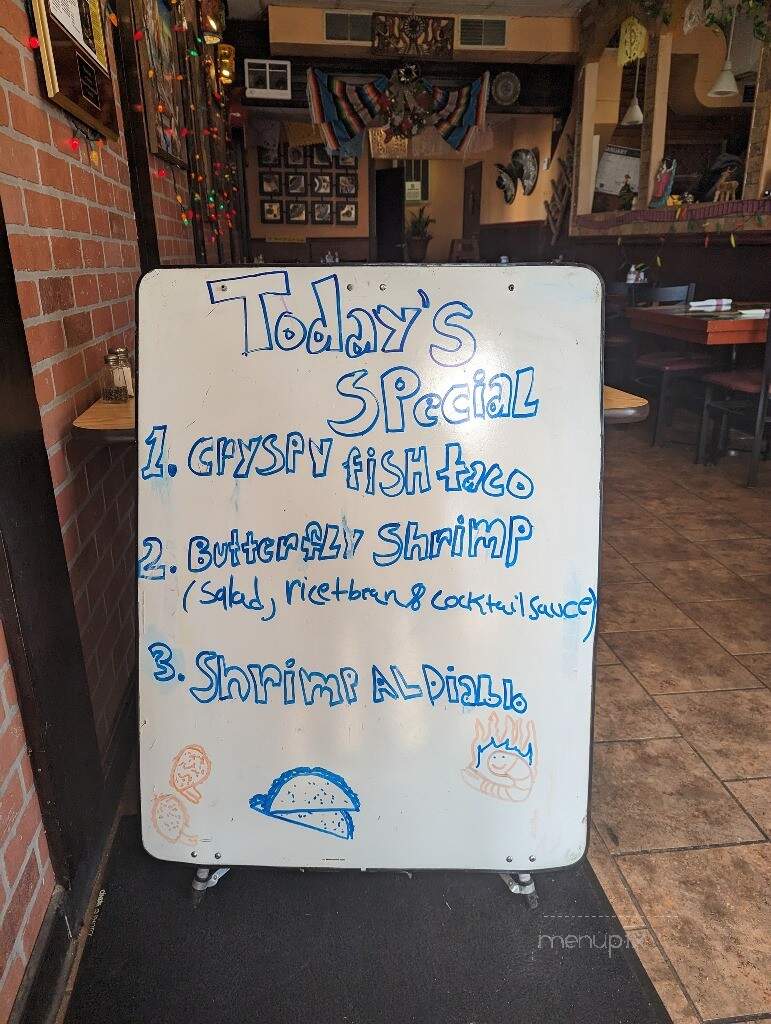 Today's
Special
1. Cryspy fish taco
2. Butterfly Shrimp
(Salad, rice+bean & cocktail sauce)
3. Shrimp AL Diablo
JANUARY